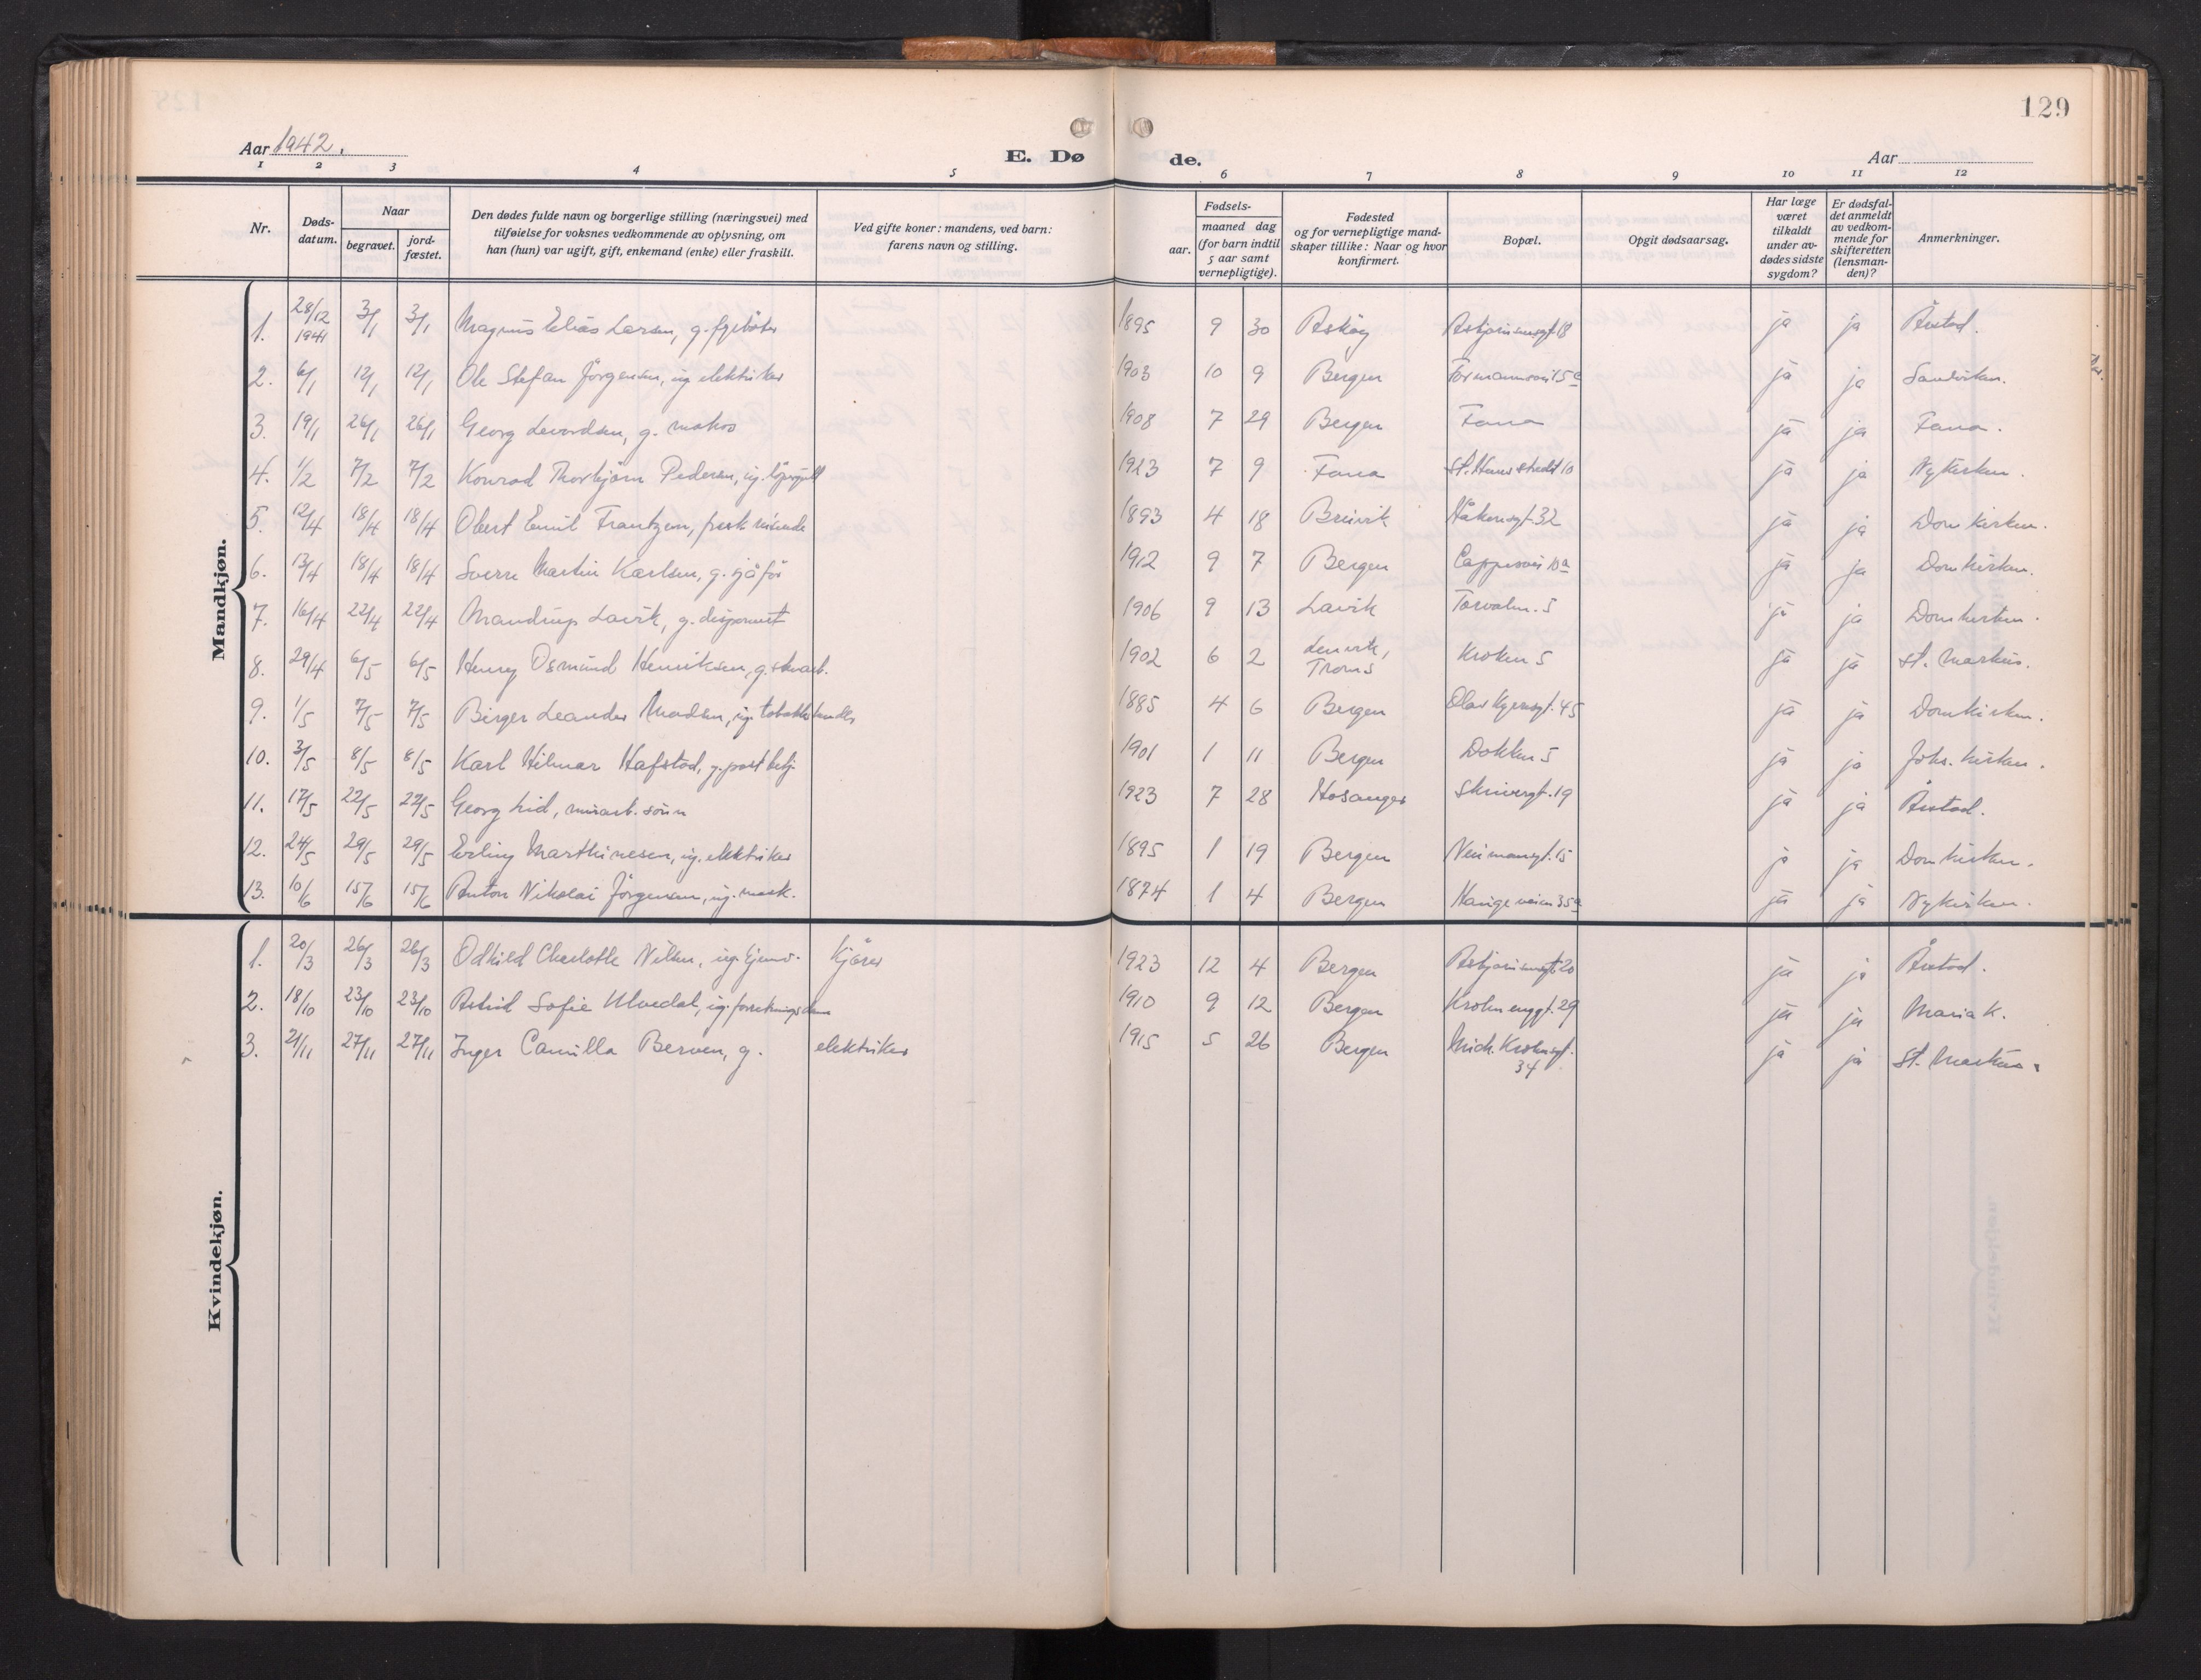 129
Aar 1942. E. Dø de. Aar
1 2 3 4 5 6 7 8 9 10 11 12
Nr. Døds-datum. Naar begravet. jord-fæstet. Den dødes fulde navn og borgerlige stilling (næringsvei) med tilføielse for voksnes vedkommende av oplysning, om han (hun) var ugift, gift, enkemand (enke) eller fraskilt. Ved gifte koner: mandens, ved barn: farens navn og stilling. Fødsels- aar. maaned dag (for barn indtil 5 aar samt vernepligtige). Fødested og for vernepligtige mand-skaper tillike: Naar og hvor konfirmert. Bopæl. Opgit dødsaarsag. Har læge været tilkaldt under av-dødes sidste sygdom? Er dødsfal-det anmeldt av vedkom-mende for skifteretten (lensman-den)? Anmerkninger.
Mandkjøn.
1. 28/12 1941 3/1 3/1 Magnus Elias Larsen, g. fyrbøter 1895 9 30 Askøy Asbjørnsensgt. 18 ja ja Årstad.
2. 6/1 12/1 12/1 Ole Stefan Jörgensen, ug elektriker 1903 10 9 Bergen 15 ja ja Sandviken.
3. 19/1 26/1 26/1 Georg g. 1908 7 29 Bergen Fana ja ja Fana.
4. 1/2 7/2 7/2 Konrad Thorbjörn Pedersen, ug. 1923 7 9 Fana St. Hans stredt 10 ja ja Nykirken.
5. 12/4 18/4 18/4 Obert Emil Frantzen, 1893 4 18 Breivik Håkonsgt. 32 ja ja Domkirken.
6. 13/4 18/4 18/4 Sverre Martin Karlsen, g. sjåför 1912 9 7 Bergen Cappesvei 10a ja ja Domkirken.
7. 16/4 22/4 22/4 Mandrup Lavik, g. disponent 1906 9 13 Lavik Torvalm. 5 ja ja Domkirken.
8. 29/4 6/5 6/5 Henry Osmund Henriksen, g. 1902 6 2 Lenvik, Troms Kroken 5 ja ja St. Markus.
9. 1/5 7/5 7/5 Birger Leander Madsen, ug. tobakkshandler 1885 4 6 Bergen Olav Kyrresgt. 45 ja ja Domkirken.
10. 3/5 8/5 8/5 Karl Hilmar Hafstad, g. postbetj. 1901 1 11 Bergen Dokken 5 ja ja Johs. kirken.
11. 17/5 22/5 22/5 Georg Lid, murarb. sönn 1923 7 28 Hosanger Skivergt. 19 ja ja Årstad.
12. 24/5 29/5 29/5 Erling Marthinesen, ug. elektriker 1895 1 19 Bergen Neumannsgt. 15 ja ja Domkirken.
13. 10/6 15/6 15/6 Anton Nikolai Jörgensen, ug. mask. 1874 1 4 Bergen Haugeveien 35a ja ja Nykirken.
Kvindekjøn.
1. 20/3 26/3 26/3 Odhild Charlotte Nilsen, ug. Kjörer 1923 12 4 Bergen Asbjørnsensgt. 20 ja ja Årstad.
2. 18/10 23/10 23/10 Astrid Sofie Ulvedal, ug. forretningsdame 1910 9 12 Bergen Krohnenggt. 29 ja ja Maria k.
3. 21/11 27/11 27/11 Inger Camilla Berven, g. elektriker 1915 5 26 Bergen Mich. Krohnsgt. 34 ja ja St. Markus.